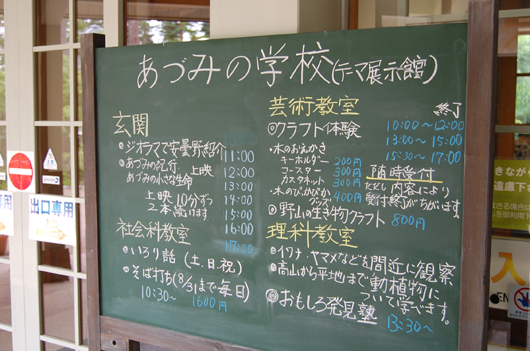 あづみの学校(テーマ展示館)
玄関
・ジオラマで安曇野紹介
・あづみの紀行 上映
あづみの小さな生命
上映10分ずつ
2本流います
11:00
12:00
13:00
14:00
15:00
16:00
17:00
社会科教室
・いろり話(土、日祝)
・そば打ち(8/31まで毎日)
10:30~ 1600円
芸術教室
◎クラフト体験
終了
10:00~12:00
13:00~15:00
15:30~17:00
・木のおえかき
キーホルダー 200円
コースター 300円
カスタネット 300円
・木のぴかぴかグッズ 400円
随時受付
ただし内容により
受付終了がちがいます
◎野山の生き物クラフト 800円
理科教室
・イワナ、ヤマメなどを間近に観察
・高山から平地まで動植物に
ついて学べます。
◎おもしろ発見塾
13:30~
出口専用
入